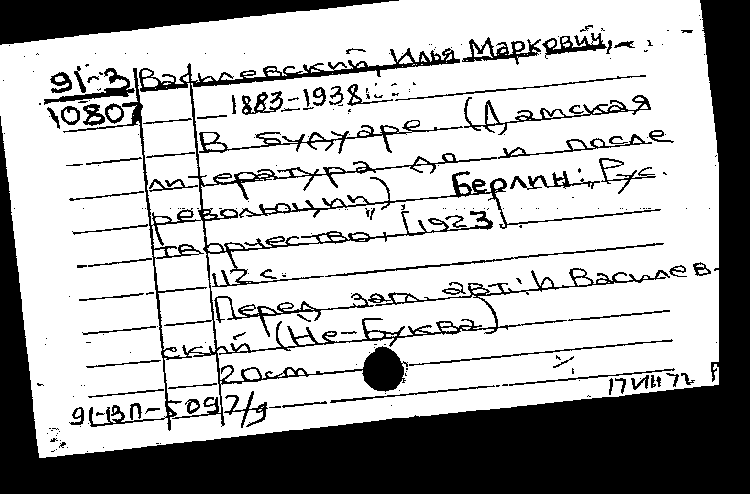 91-3 Василевский, Илья Маркович,
10807 1883-1938.
В будуаре. (Дамская
литература до и после
революции). Берлин: "Рус.
творчество", [1923].
112 с.
Перед загл. авт.: И. Василев-
ский (Не-Буква).
20 см.
91-13П-5097/g